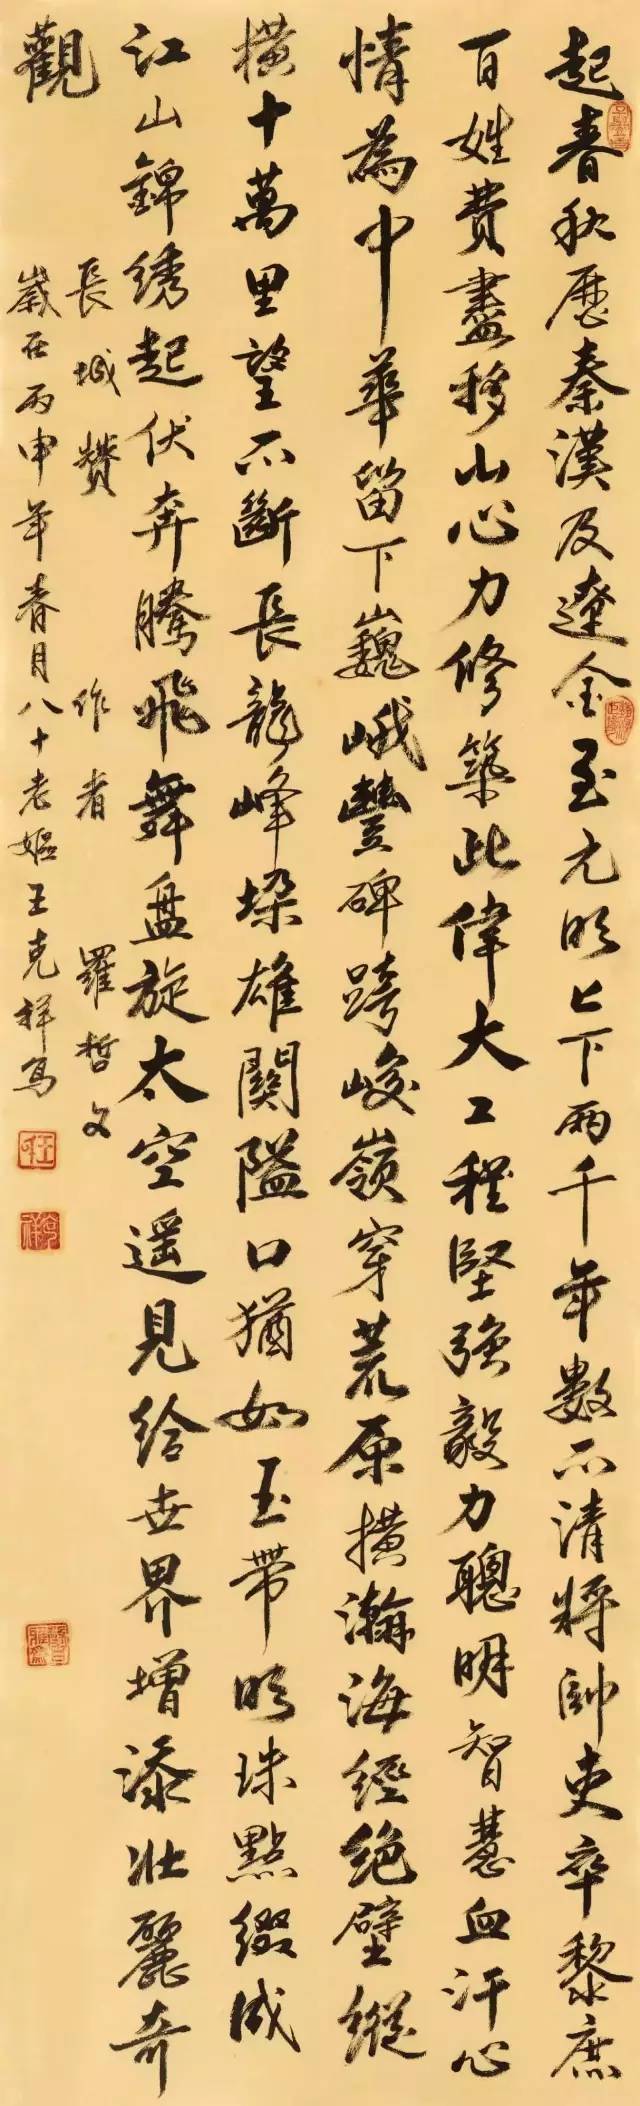 起春秋歷秦漢及遼金至元明上下兩千年數不清將帥吏卒黎庶
百姓費盡移山心力修築此偉大工程堅強毅力聰明智慧血汗心
情為中華留下巍峨豐碑跨峻嶺穿荒原橫瀚海經絕壁縱
橫十萬里望不斷長龍峰垛雄關隘口猶如玉帶明珠點綴成
江山錦绣起伏奔騰飛舞盘旋太空遥見给世界增添壯麗奇
觀
長城贊 作者 羅哲文
歲在丙申年春月八十老嫗王克祥寫